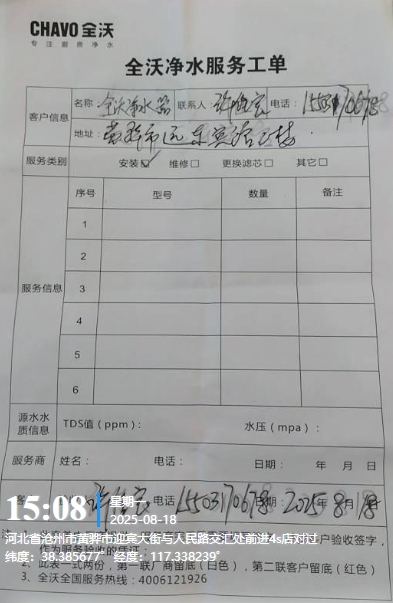 CHAVO全沃
专注厨房净水
全沃净水服务工单
客户信息
名称 全沃净水器 联系人 电话:
地址: 黄骅市
服务类别 安装☑ 维修□ 更换滤芯□ 其它□
服务信息
序号 型号 数量 备注
1
2
3
4
5
6
源水水质信息 TDS值(ppm): 水压(mpa):
服务商 姓名: 电话: 日期: 年 月 日
15503170678 2025年8月18
15:08 星期一
2025-08-18
河北省沧州市黄骅市迎宾大街与人民路交汇处前进4s店对过
纬度: 38.385677° 经度: 117.338239°
户验收签字,
作为服务验收的凭证;
2、此表一式两份,第一联厂商留底(白色),第二联客户留底(红色)
3、全沃全国服务热线:4006121926